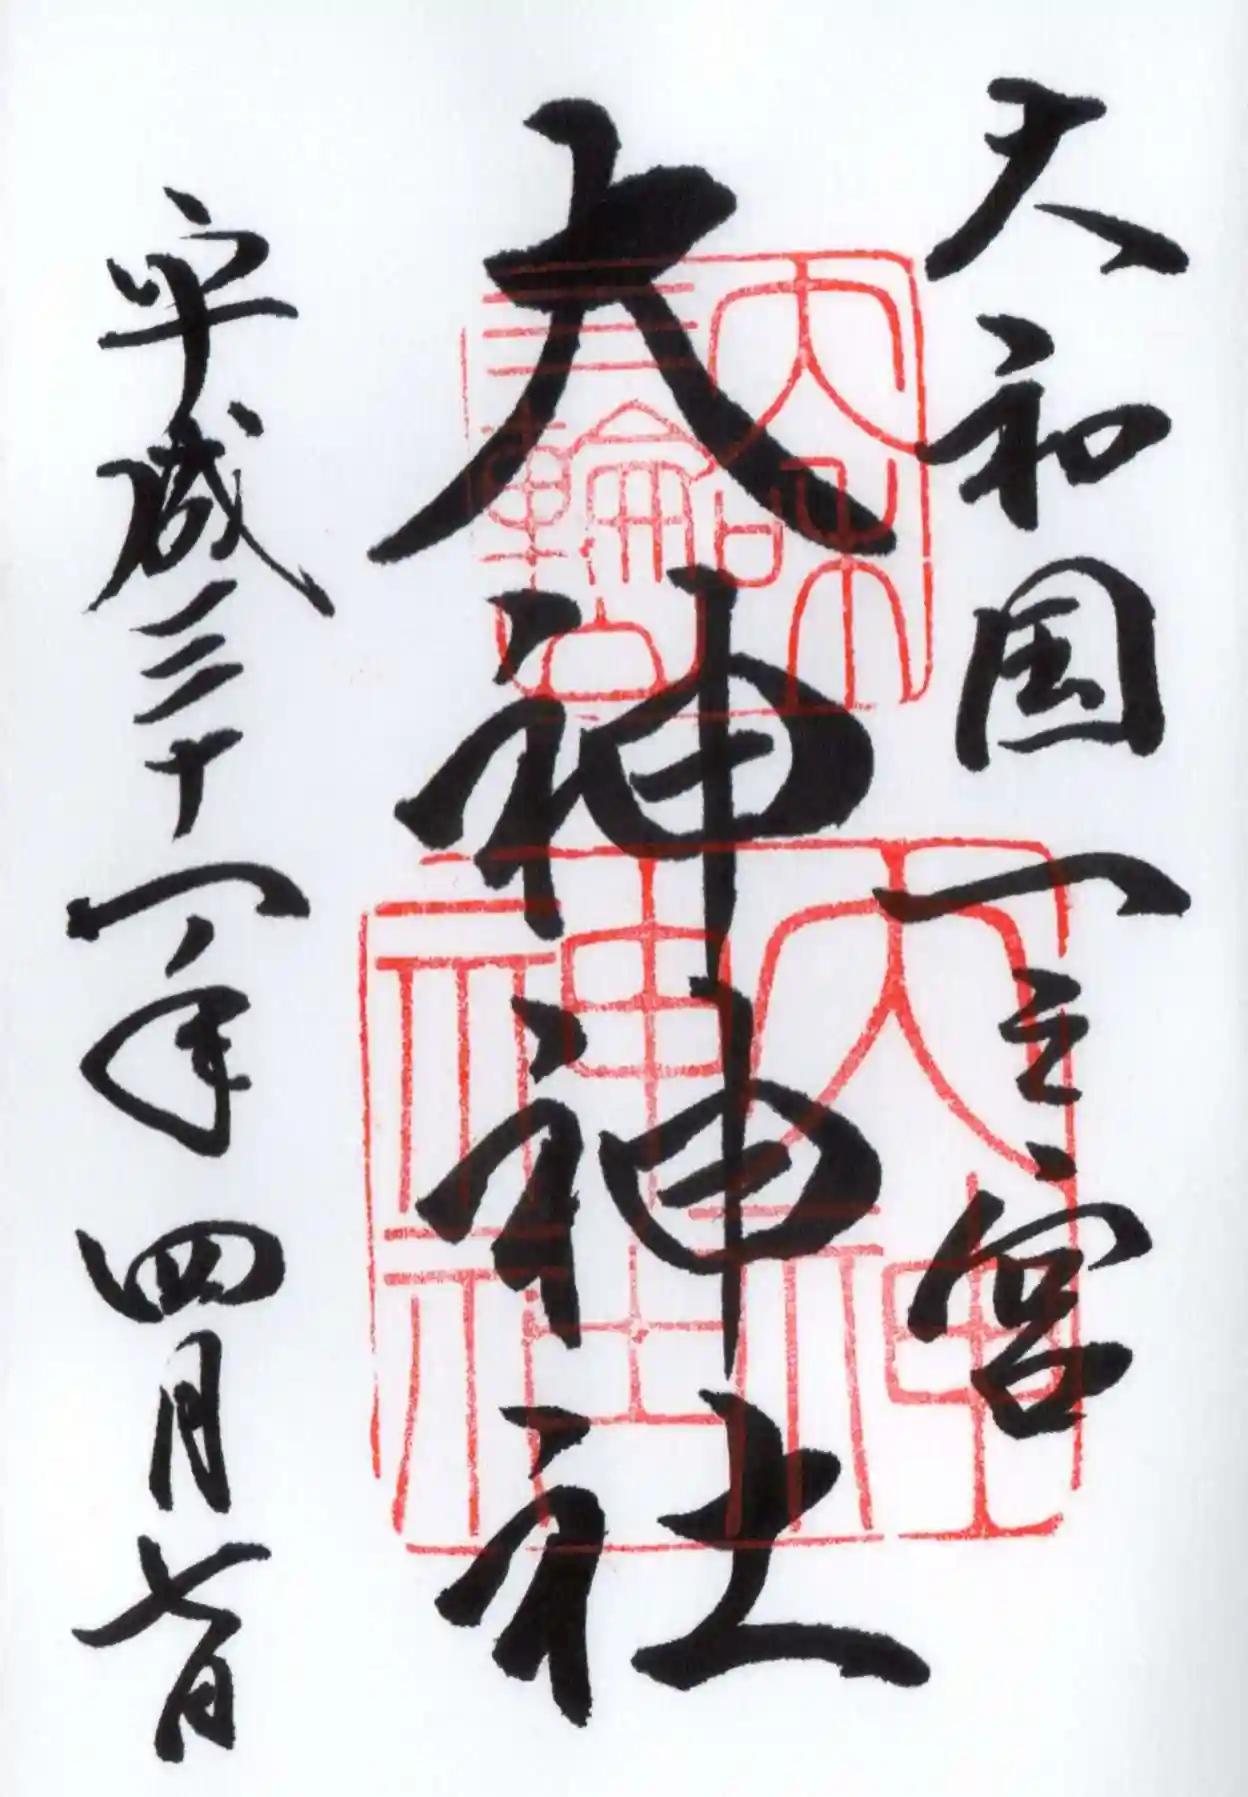 大和国一之宮
大神神社
平成三十一年四月七日
大和
三輪
大神
神社